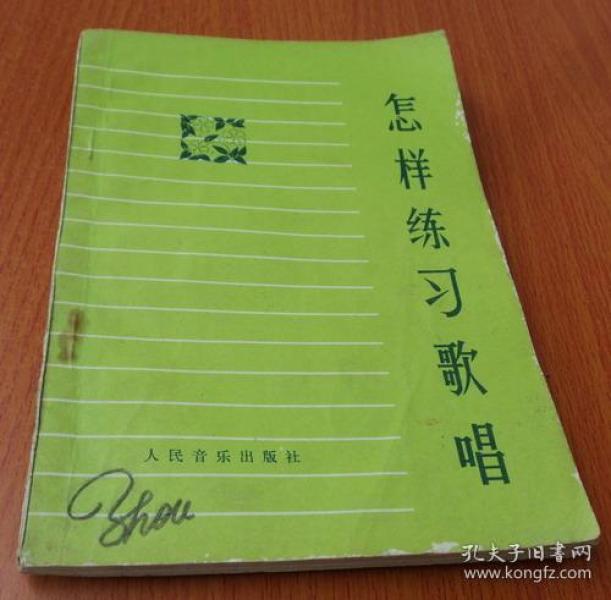 怎样练习歌唱
人民音乐出版社
Zhou
孔夫子旧书网
www.kongfz.com